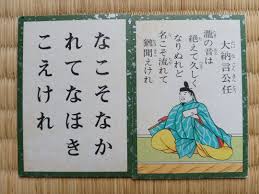 大納言公任
瀧の音は
絶えて久しく
なりぬれど
名こそ流れて
猶聞えけれ
なこそなか
れてなほき
こえけれ